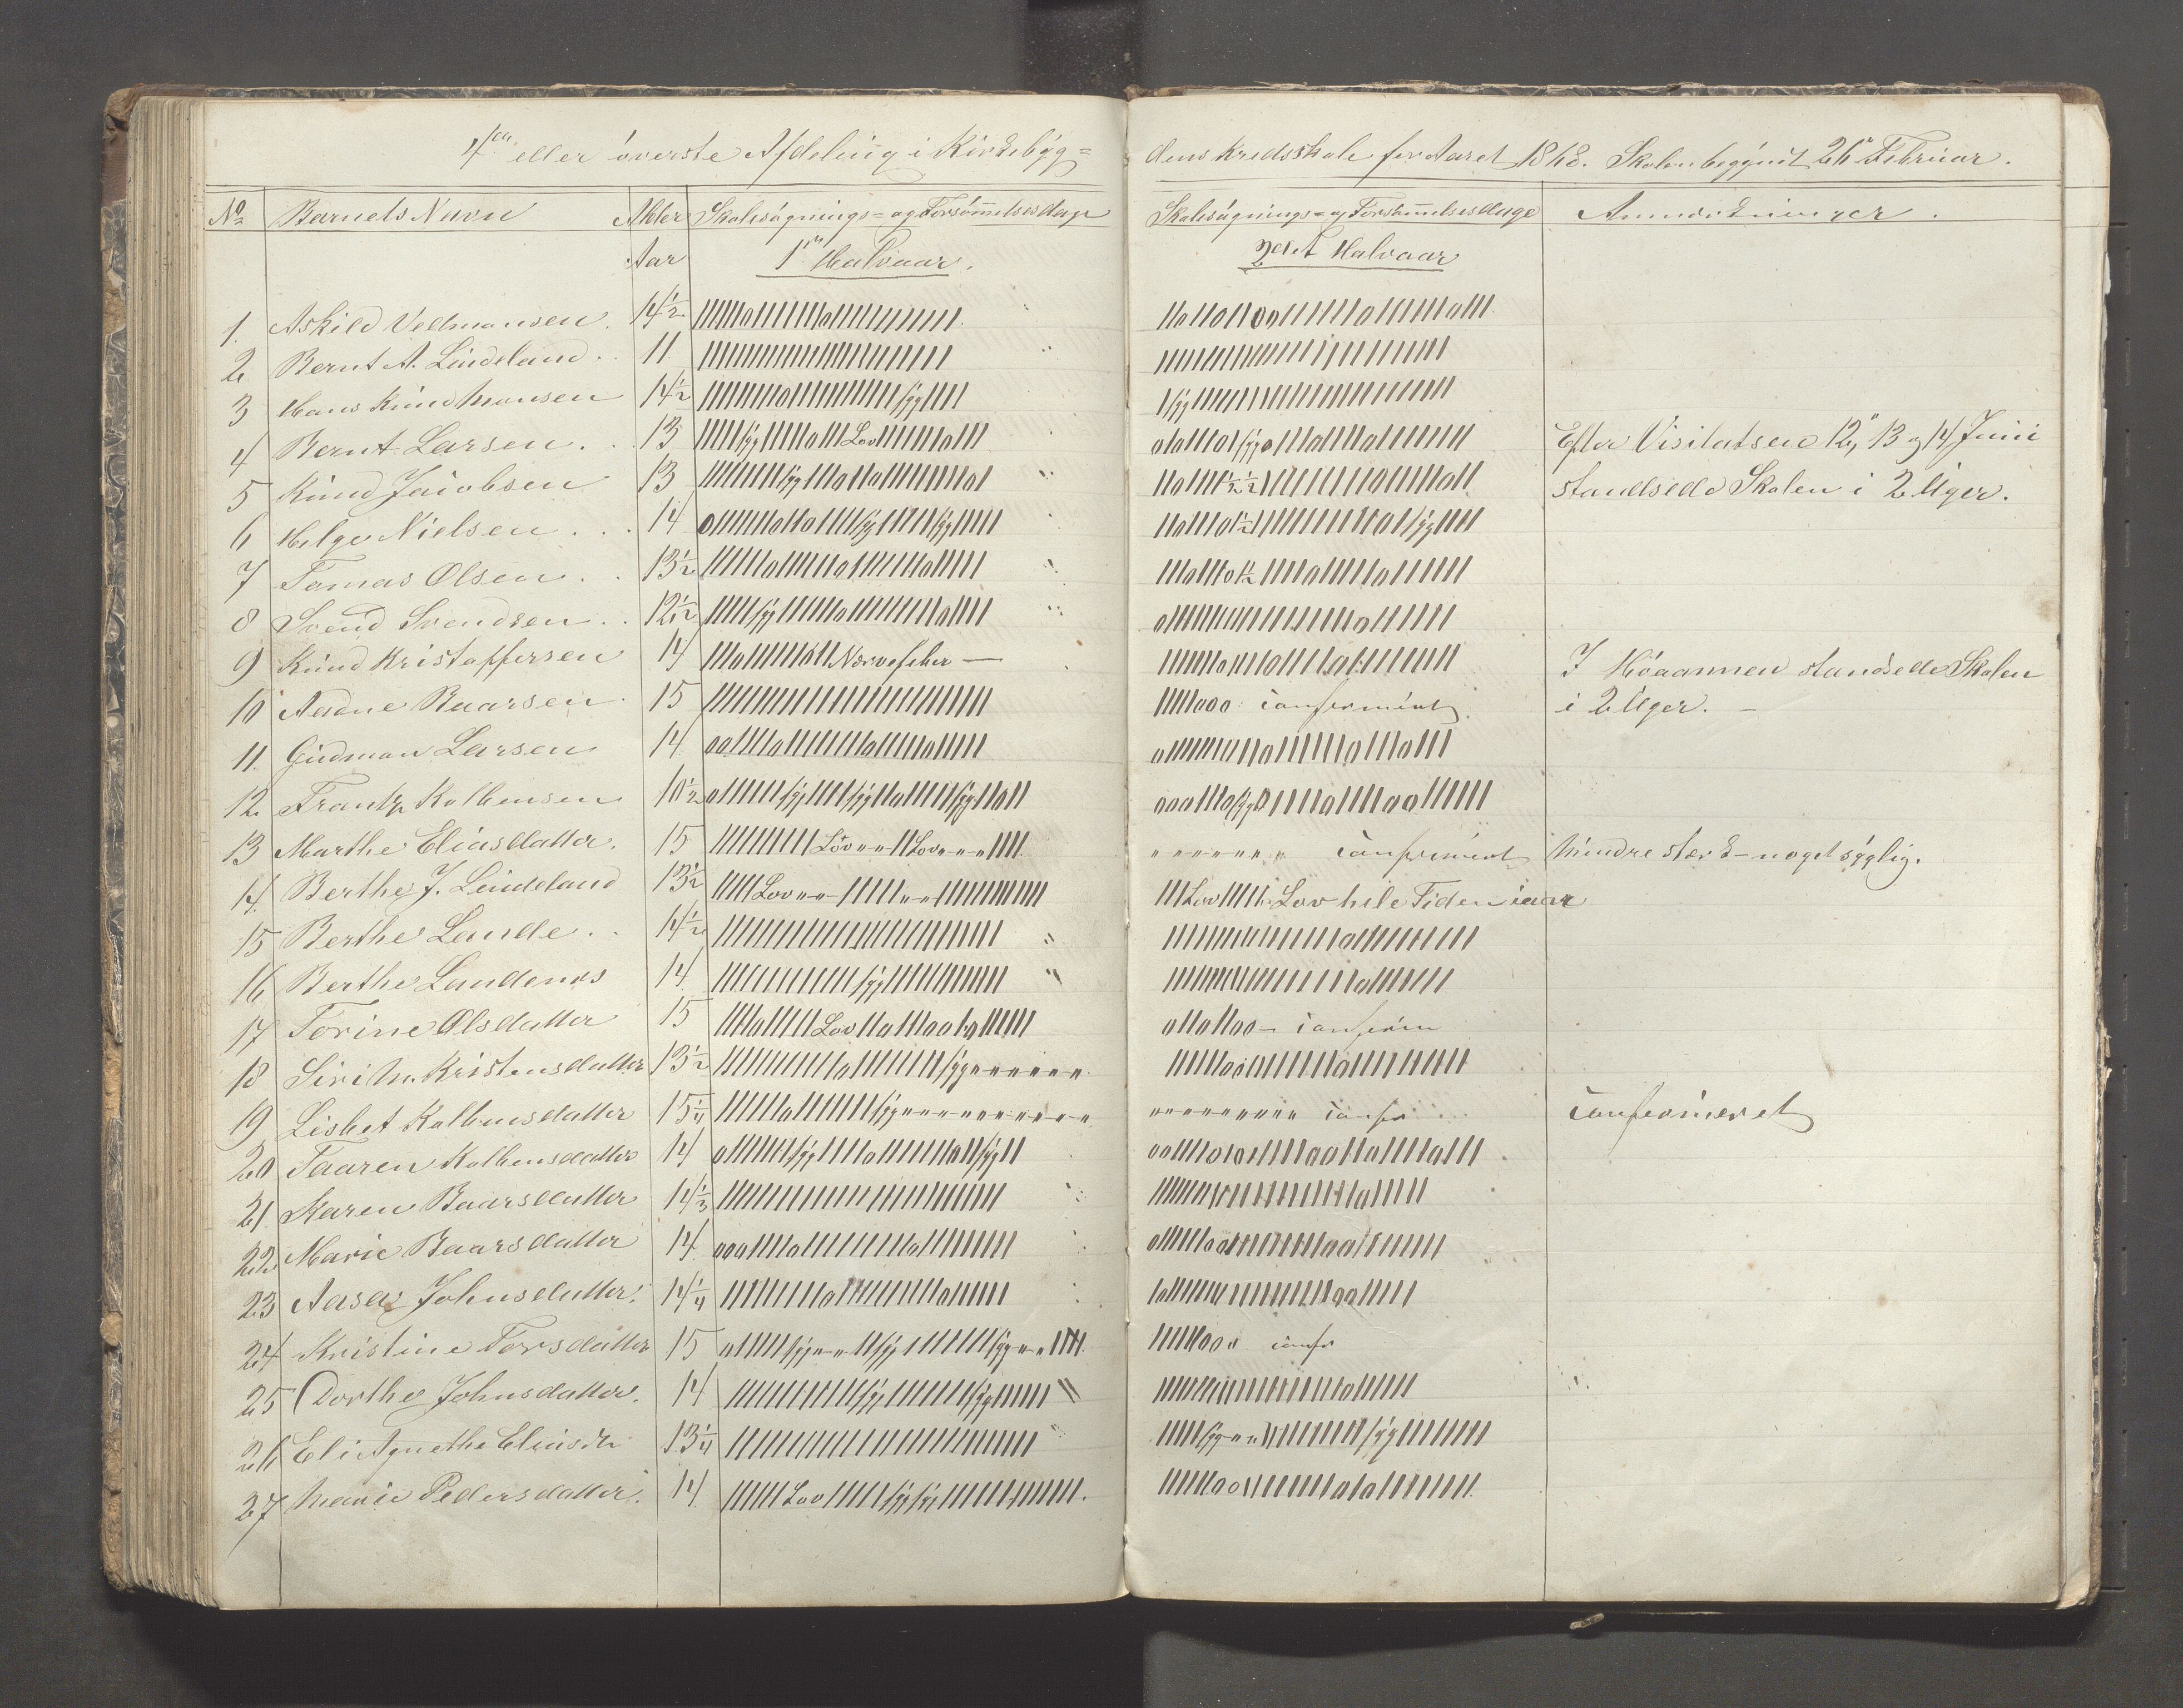 4de eller överste Afdeling i Kirkebyg=
dens Kredsskole for Aaret 1868. Skolen begyndt 26de Februar.
No Barnets Navn Alder Skolesøgnings= og Forsømmelsesdage
Skolesøgnings= og Forsømmelsesdage Anmærkninger.
Aar 1ste Halvaar.
2det Halvaar
1. Askild Vedmansen. 14½
2 Bernt A. Lindeland 11
3 Hans Knud Monsen 14½ syg
syg
4 Bernt Larsen 13 syg Lov
syg Efter Visitatsen 12, 13 og 14 Juni
5 Knud Jacobsen 13 syg
½ ½ standsede Skolen i 2 Uger.
6 Helge Nielsen 14 syg syg
½ syg
7 Tomas Olsen 13½
½
8 Svend Svendsen 12½ syg
9 Knud Kristoffersen 14 Nervefeber —
I Höaannen standsede Skolen
10 Aadne Baarsen 15
confirmeret i 2 Uger. —
11. Gudman Larsen 14
12 Frantz Kolbensen 10½ syg syg syg
syg
13 Marthe Eliasdatter. 15 Lov " " Lov " " "
" " " " " " " confirmeret mindre stærk – noget syglig.
14. Berthe J. Lindeland 13½ Lov " " " "
Lov Lov hele Tiden iaar
15 Berthe Lande 14½
16 Berthe Landenes 14 syg
17 Torine Olsdatter 15 Lov
– confirm
18 Siri M. Kristensdatter 13½ syg " " " " " "
19 Lisbet Kolbensdatter 15¼ syg " " " " " " " " " "
" " " " " " " " " confr confirmeret
20 Taaren Kolbensdatter 14 syg syg
21 Karen Baarsdatter 14⅓
22 Marie Baarsdatter 14
23 Aasa Johnsdatter. 14¼
24 Kristine Torsdatter 15 syg " " syg syg " "
confr
25 Dorthe Johnsdatter. 14 syg syg
26 Eli Agnethe Eliasdtr 13¼
syg " " syg
27 Marie Pedersdatter. 14 Lov syg syg